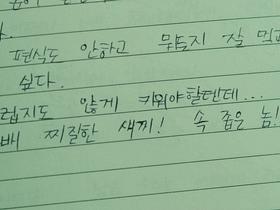 편식도 안하고 뭐든지 잘 먹고
싶다.
립지도 않게 키워야할텐데...
배 찌질한 새끼! 속 좁은 놈!